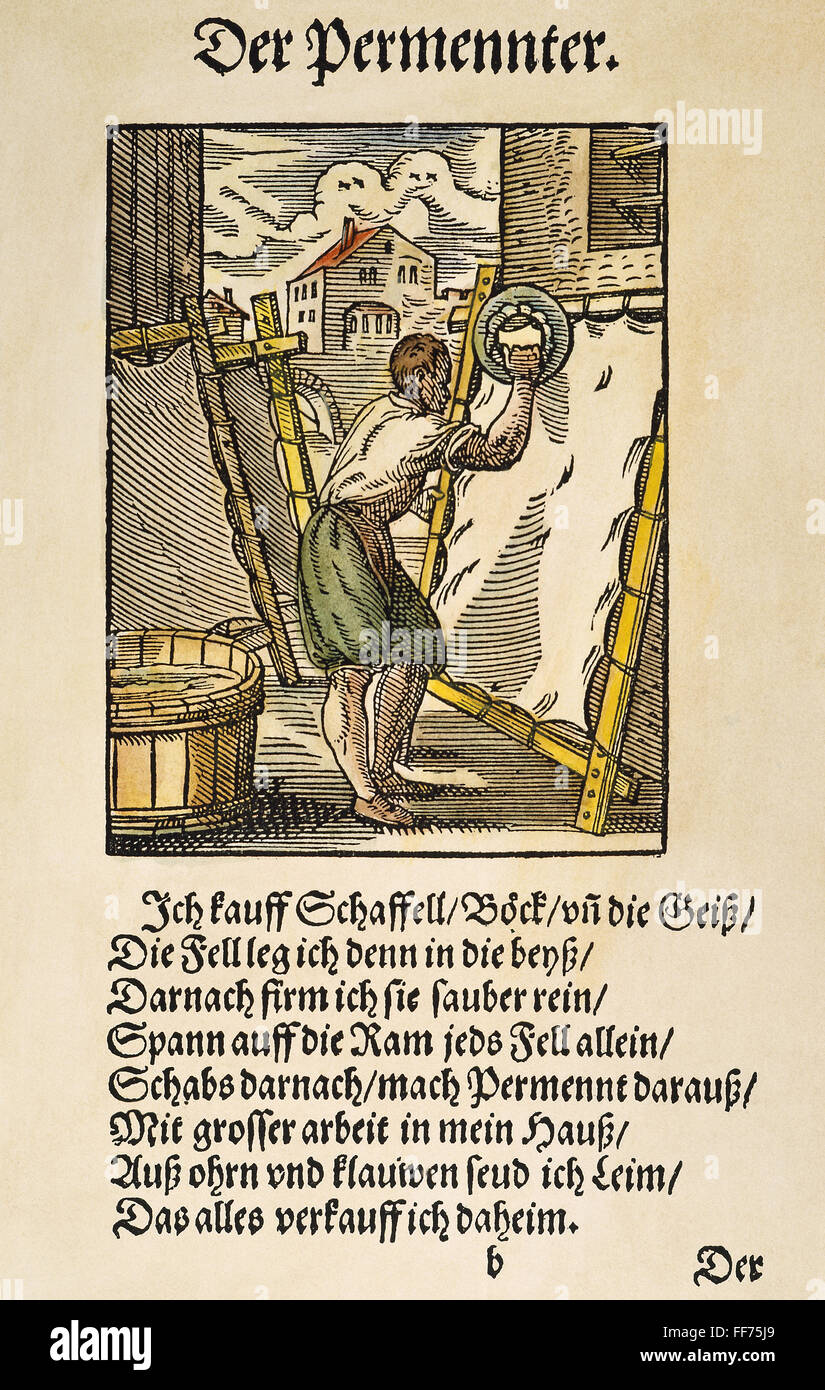 Der Permennter.
Ich kauff Schaffell/Böck/vñ die Geiß/
Die Fell leg ich denn in die beyß/
Darnach firm ich sie sauber rein/
Spann auff die Ram jeds Fell allein/
Schabs darnach/mach Permennt darauß/
Mit grosser arbeit in mein Hauß/
Auß ohrn vnd klauwen seud ich Leim/
Das alles verkauff ich daheim.
b Der
alamy
alamy stock photo
FF75J9
www.alamy.com